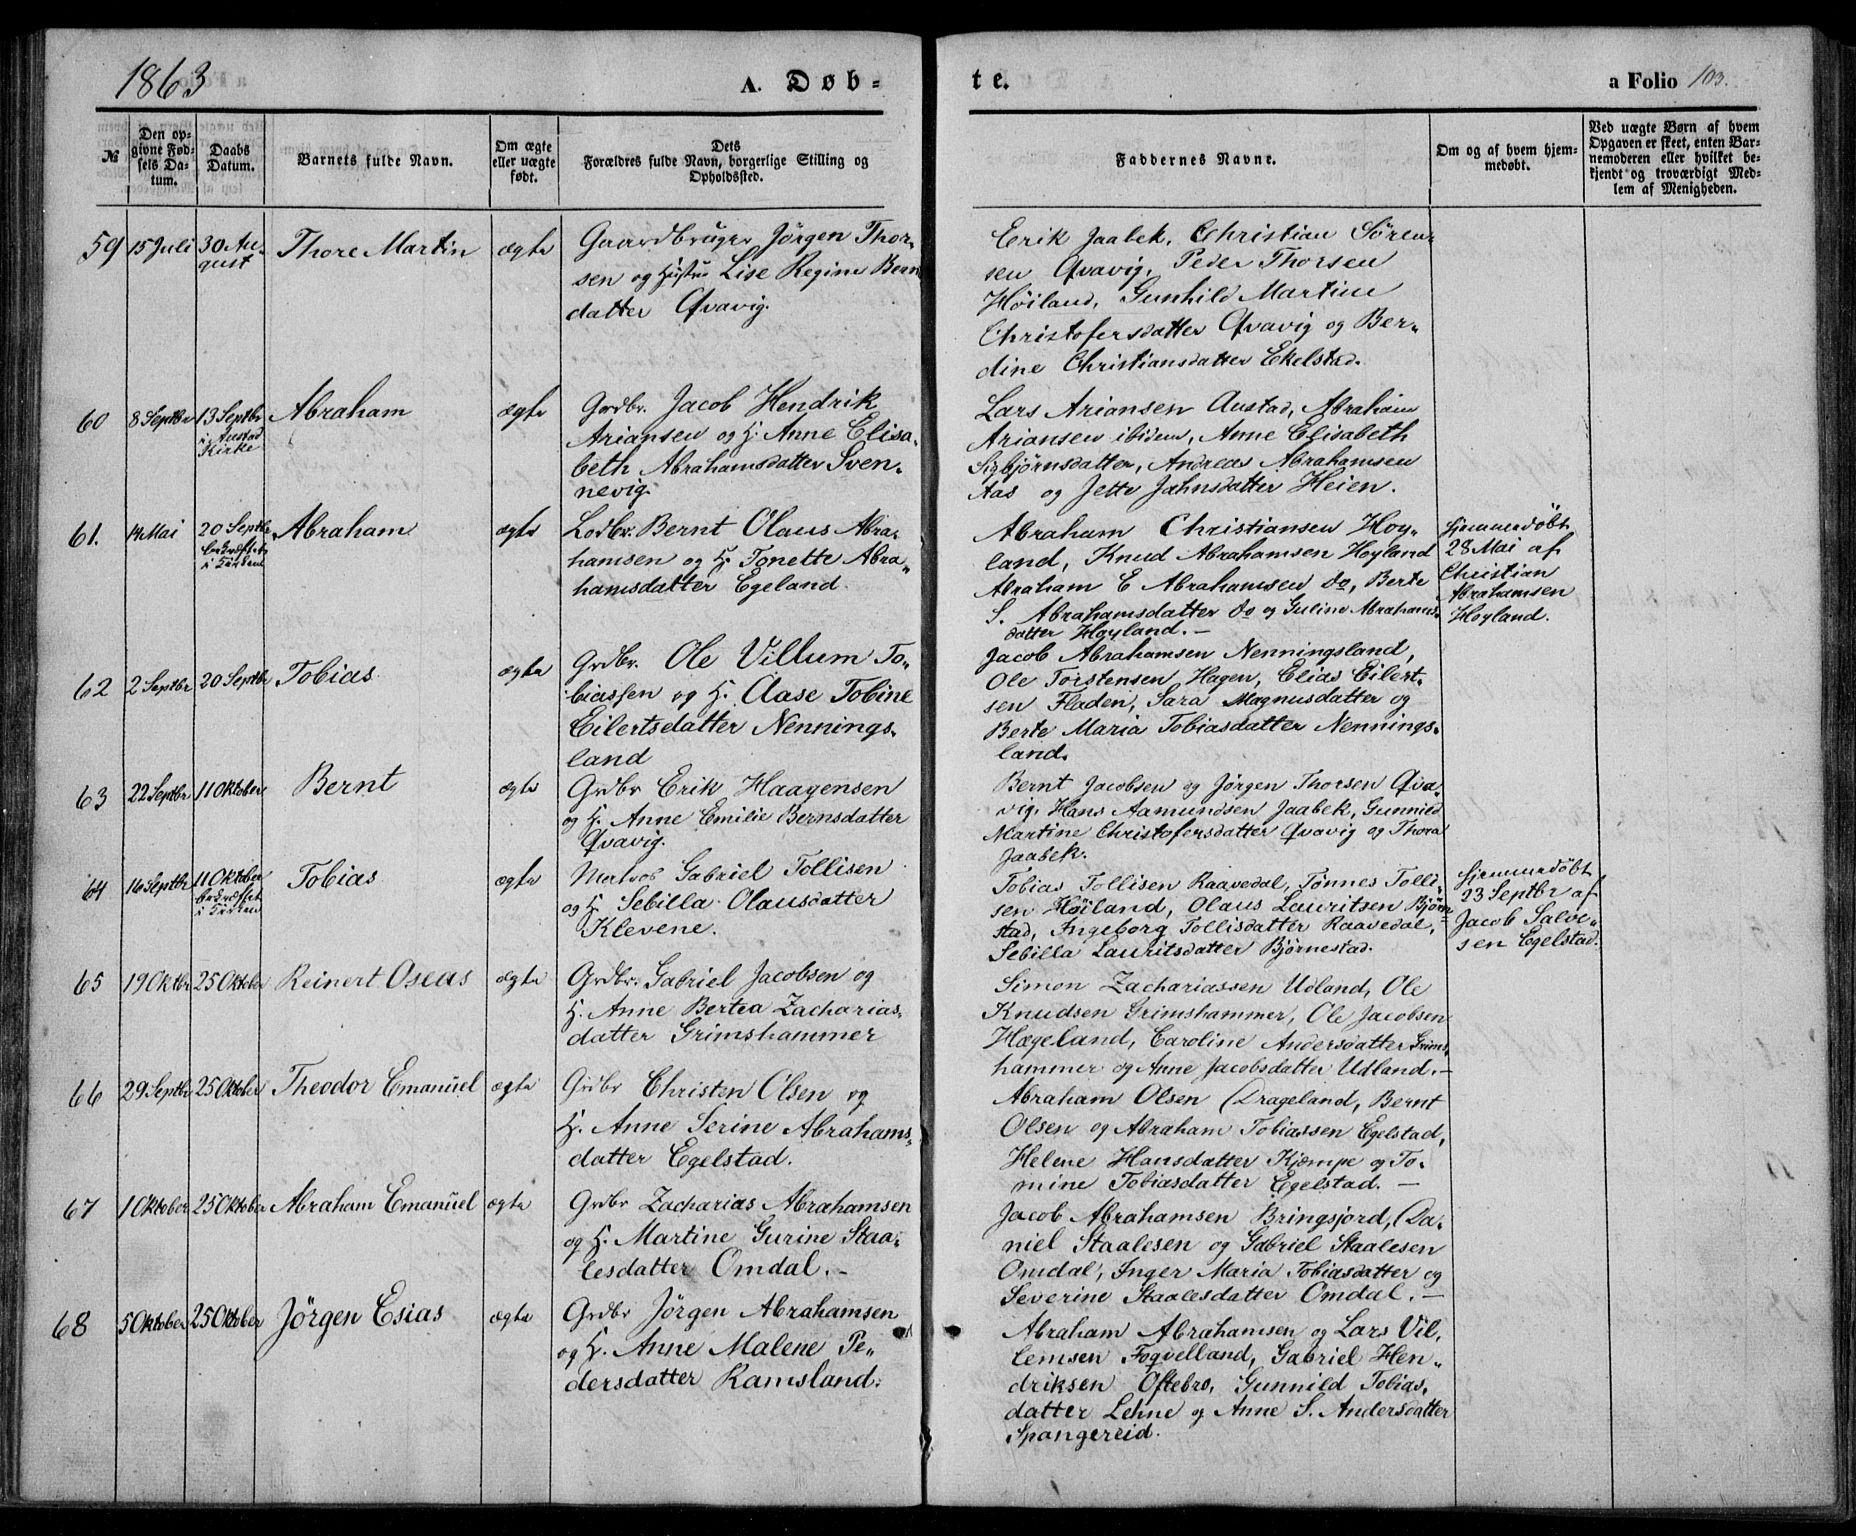 1863
A. Døb-
te.
a Folio 103.
№
Den op-
givne Fød-
sels Da-
tum.
Daabs
Datum.
Barnets fulde Navn.
Om ægte
eller uægte
født.
Dets
Forældres fulde Navn, borgerlige Stilling og
Opholdssted.
Faddernes Navne.
Om og af hvem hjem-
medøbt.
Ved uægte Børn af hvem
Opgaven er skeet, enten Bar-
nemoderen eller hvilket be-
kjendt og troværdigt Med-
lem af Menigheden.
59
15 Juli
30 Au-
gust
Thore Martin
ægte
Gaardbruger Jörgen Thor-
sen og Hustru Lise Regine Bern
datter Qvavig.
Erik Jaabek, Christian Sören-
sen Qvavig, Peder Thorsen
Höiland, Gunhild Martine
Christofersdatter Qvavig og Ber-
dine Christiansdatter Ekelstad.
60
8 Septbr
13 Septbr
i Austad
Kirke
Abraham
ægte
Grdbr. Jacob Hendrik
Ariansen og H. Anne Elisa-
beth Abrahamsdatter Sven-
nevig.
Lars Ariansen Austad, Abraham
Ariansen ibidem, Anne Elisabeth
Sigbjörnsdatter, Andreas Abrahamsen
Aas og Jette Jahnsdatter Heien.
61.
14 Mai
20 Septbr
bekræftet
i Kirken
Abraham
ægte
Lodbr. Bernt Olaus Abra-
hamsen og H. Tonette Abra-
hamsdatter Egeland.
Abraham Christiansen Hoy-
land, Knud Abrahamsen Hoyland
Abraham E Abrahamsen do, Berte
S. Abrahamsdatter do og Guline Abrahams-
datter Hoyland.-
Hjemmedöbt
28 Mai af
Christian
Abrahamsen
Hoyland.
62
2 Septbr
20 Septbr
Tobias
ægte
Grdbr. Ole Villum To-
biassen og H. Aase Tobine
Eilertsdatter Nennings-
land
Jacob Abrahamsen Nenningsland,
Ole Torstensen Hagen, Elias Eilert-
sen Fladen, Sara Magnusdatter og
Berte Maria Tobiasdatter Nennings-
land.
63
22 Septbr
11 Oktober
Bernt
ægte
Grdbr Erik Haagensen
og H. Anne Emilie Bernsdatter
Qvavig.
Bernt Jacobsen og Jörgen Thorsen Qva-
vig, Hans Aamundsen Jaabek, Gunnild
Martine Christofersdatter Qvavig og Thora
Jaabek.
64
16 Septbr
11 Oktober
bekræftet
i Kirken
Tobias
ægte
Gabriel Tollisen
og H. Sebilla Olausdatter
Klevene.
Tobias Tollisen Raavedal, Tönnes Tolli-
sen Höiland, Olaus Lauritsen Björn-
stad, Ingeborg Tollisdatter Raavedal,
Sebilla Lauritsdatter Björnestad.
Hjemmedöbt
23 Septbr af
Jacob Salve-
sen Egelstad.
65
19 Oktbr
25 Oktober
Reinert Oseas
ægte
Grdbr. Gabriel Jacobsen og
H. Anne Bertea Zacharias-
datter Grimshammer
Simon Zachariassen Udland, Ole
Knudsen Grimshammer, Ole Jacobsen
Hægeland, Caroline Andersdatter Grims-
hammer og Anne Jacobsdatter Udland.-
66
29 Septbr
25 Oktober
Theodor Emanuel
ægte
Grdbr Christen Olsen og
H. Anne Serine Abrahams-
datter Egelstad.
Abraham Olsen Drageland, Bernt
Olsen og Abraham Tobiassen Egelstad,
Helene Hansdatter Kjæmpe og To-
mine Tobiasdatter Egelstad.-
67
1 Oktober
25 Oktober
Abraham Emanuel
ægte
Grdbr Zacharias Abrahamsen
og H. Martine Gurine Staa-
lesdatter Omdal.-
Jacob Abrahamsen Bringsjord, Da-
niel Staalesen og Gabriel Staalesen
Omdal, Inger Maria Tobiasdatter og
Severine Staalesdatter Omdal.-
68
5 Oktober
25 Oktober
Jörgen Esias
ægte
Grdbr Jörgen Abrahamsen
og H. Anne Malene Pe-
dersdatter Ramsland.
Abraham Abrahamsen og Lars Vil-
lemsen Foqvelland, Gabriel Hen-
driksen Oftebro, Gunnild Tobias-
datter Lehne og Anne S. Andersdatter
Spangereid.